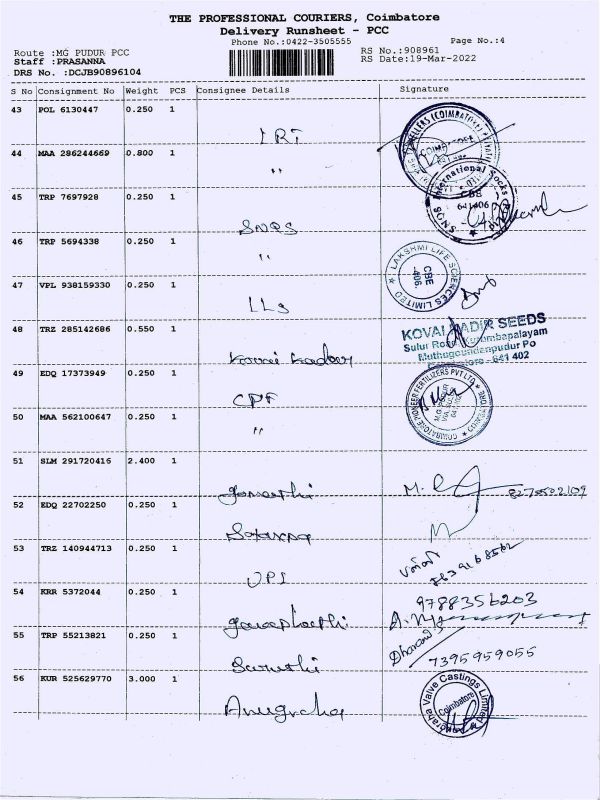 THE PROFESSIONAL COURIERS, Coimbatore
Delivery Runsheet - PCC
Phone No.:0422-3505555
Page No.:4
Route :MG PUDUR PCC
RS No.:908961
Staff :PRASANNA
RS Date:19-Mar-2022
DRS No. :DCJB90896104
S No Consignment No Weight PCS Consignee Details Signature
43 POL 6130447 0.250 1
44 MAA 286244669 0.800 1 "
45 TRP 7697928 0.250 1 SNQS
46 TRP 5694338 0.250 1 "
47 VPL 938159330 0.250 1 LLS
LAKSHMI LIFE SCIENCES LIMITED
CBE
406.
48 TRZ 285142686 0.550 1 Kovai Kadir
KOVAI KADIR SEEDS
Sulur Road, Kurumbapalayam
Muthugoundenpudur Po
Coimbatore - 641 402
49 EDQ 17373949 0.250 1 CPF
50 MAA 562100647 0.250 1 "
COIMBATORE PIONEER FERTILIZERS PVT LTD
51 SLM 291720416 2.400 1 Gomathi
52 EDQ 22702250 0.250 1
53 TRZ 140944713 0.250 1 UPI
54 KRR 5372044 0.250 1
9788356203
55 TRP 55213821 0.250 1 Suruthi
Dhanand 7395959055
56 KUR 525629770 3.000 1 Anugraha
Anugraha Valve Castings Limited
Coimbatore